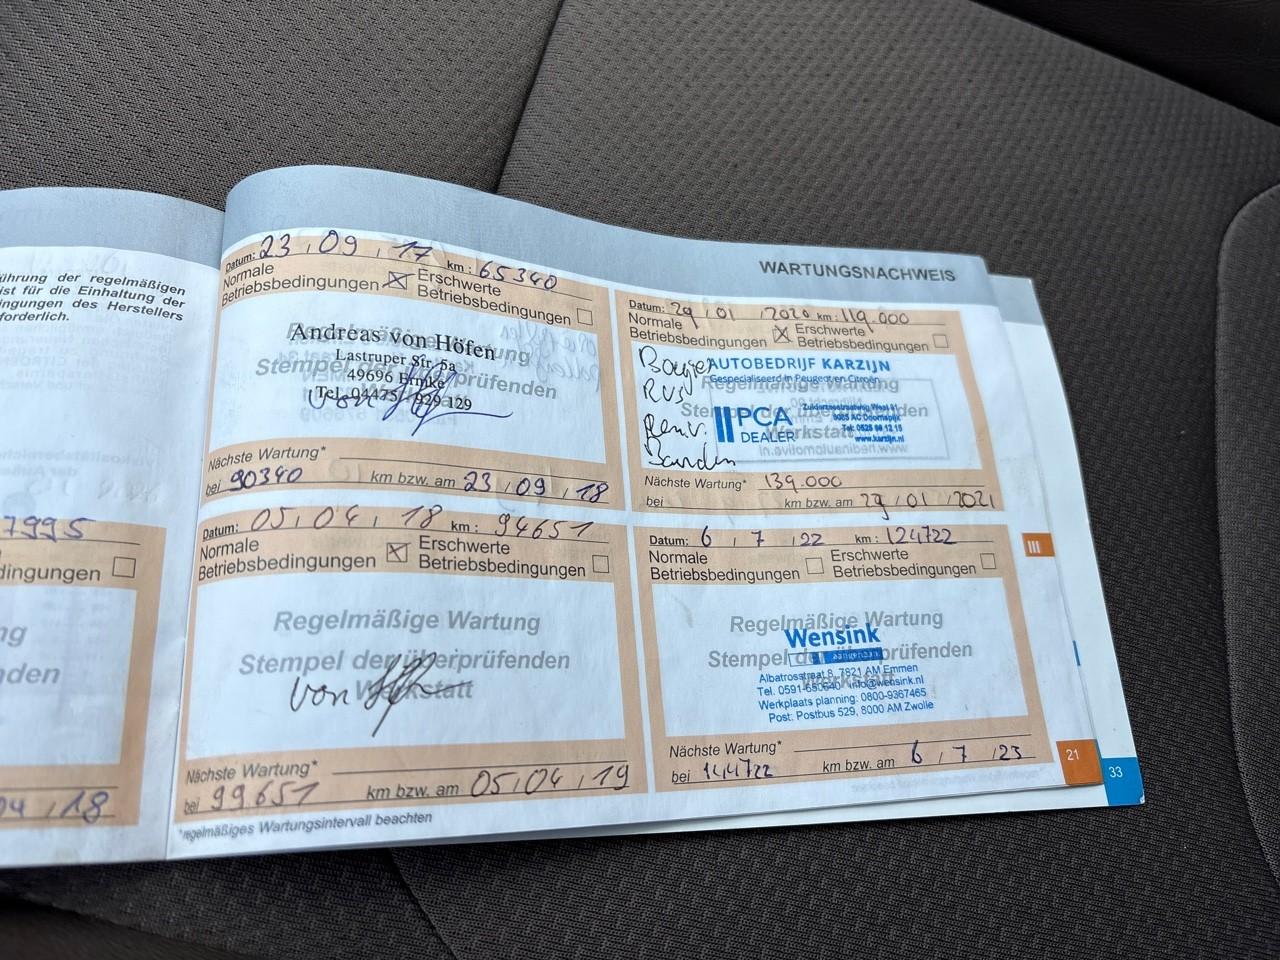 ührung der regelmäßigen
ist für die Einhaltung der
ingungen des Herstellers
forderlich.
7995
dingungen
ng
nden
04 / 18
WARTUNGSNACHWEIS
Datum: 23 / 09 / 17 km: 65340
Normale Betriebsbedingungen ☒ Erschwerte Betriebsbedingungen ☐
Regelmäßige Wartung
Stempel der überprüfenden
Werkstatt
Andreas von Höfen
Lastruper Str. 5a
49696 Ermke
Tel. 04475 / 929 129
Nächste Wartung*
bei 90340 km bzw. am 23 / 09 / 18
Datum: 05 / 04 / 18 km: 94651
Normale Betriebsbedingungen ☒ Erschwerte Betriebsbedingungen ☐
Regelmäßige Wartung
Stempel der überprüfenden
Werkstatt
von
Nächste Wartung*
bei 99651 km bzw. am 05 / 04 / 19
*regelmäßiges Wartungsintervall beachten
Datum: 29 / 01 / 2020 km: 119.000
Normale Betriebsbedingungen ☒ Erschwerte Betriebsbedingungen ☐
Regelmäßige Wartung
Stempel der überprüfenden
Werkstatt
AUTOBEDRIJF KARZIJN
Gespecialiseerd in Peugeot en Citroën
PCA
DEALER
Zuiderzeestraatweg West 81
AC Doornspijk
www.karzijn.nl
Nächste Wartung* 139.000
bei km bzw. am 29 / 01 / 2021
Datum: 6 / 7 / 22 km: 124722
Normale Betriebsbedingungen ☐ Erschwerte Betriebsbedingungen ☐
Regelmäßige Wartung
Stempel der überprüfenden
Werkstatt
Wensink
Albatrosstraat 8, 7821 AM Emmen
Tel. 0591-650640 info@wensink.nl
Werkplaats planning: 0800-9367465
Post: Postbus 529, 8000 AM Zwolle
Nächste Wartung*
bei 144722 km bzw. am 6 / 7 / 23
III
21
33